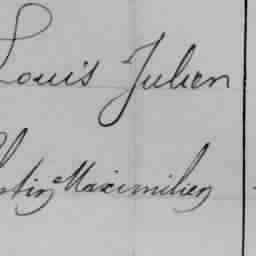 Louis Julien
Maximilien